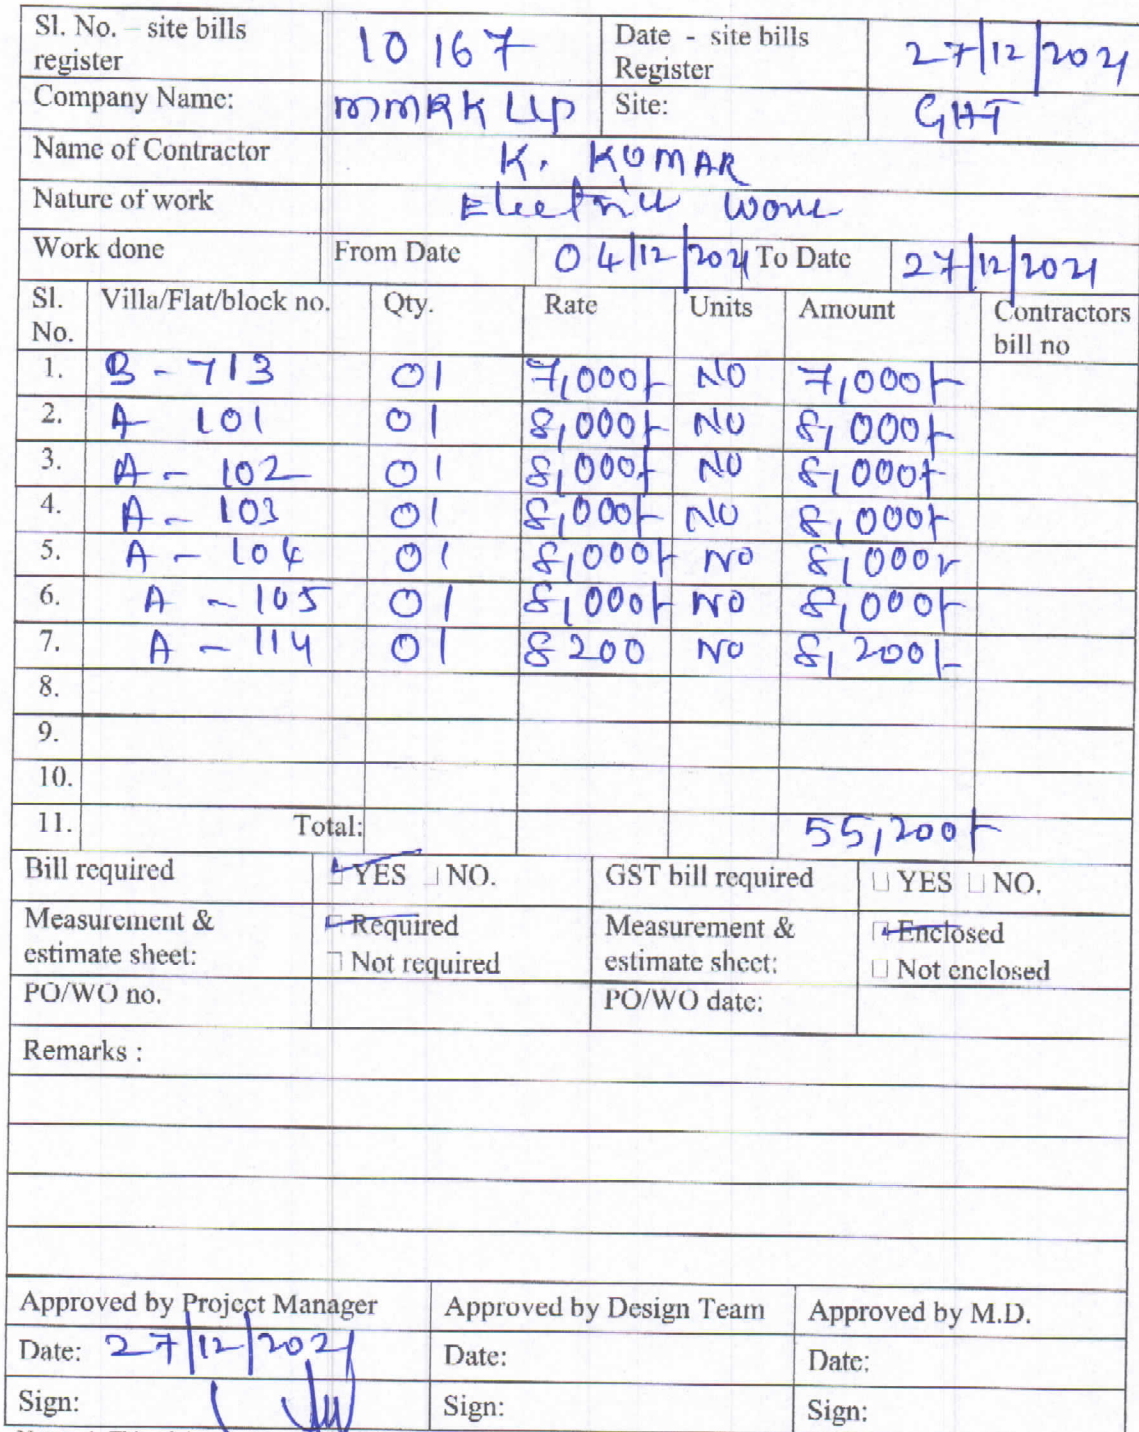 Sl. No. – site bills register 10167 Date - site bills Register 27/12/2021
Company Name: MMRK LLP Site: GHT
Name of Contractor K. KUMAR
Nature of work Electric Work
Work done From Date 04/12/2021 To Date 27/12/2021
Sl. No. Villa/Flat/block no. Qty. Rate Units Amount Contractors bill no
1. B - 713 01 7,000/- NO 7,000/-
2. A- 101 01 8,000/- NO 8,000/-
3. A - 102 01 8,000/- NO 8,000/-
4. A - 103 01 8,000/- NO 8,000/-
5. A - 104 01 8,000/- NO 8,000/-
6. A - 105 01 8,000/- NO 8,000/-
7. A - 114 01 8200 NO 8,200/-
8.
9.
10.
11. Total: 55,200/-
Bill required YES NO. GST bill required YES NO.
Measurement & estimate sheet: Required Not required Measurement & estimate sheet: Enclosed Not enclosed
PO/WO no. PO/WO date:
Remarks :
Approved by Project Manager Approved by Design Team Approved by M.D.
Date: 27/12/2021 Date: Date:
Sign: Sign: Sign: